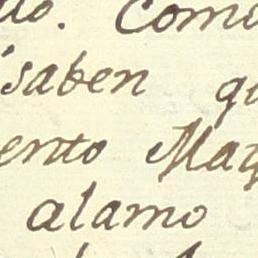 do. Como
saben qu
ento Mag
alamo